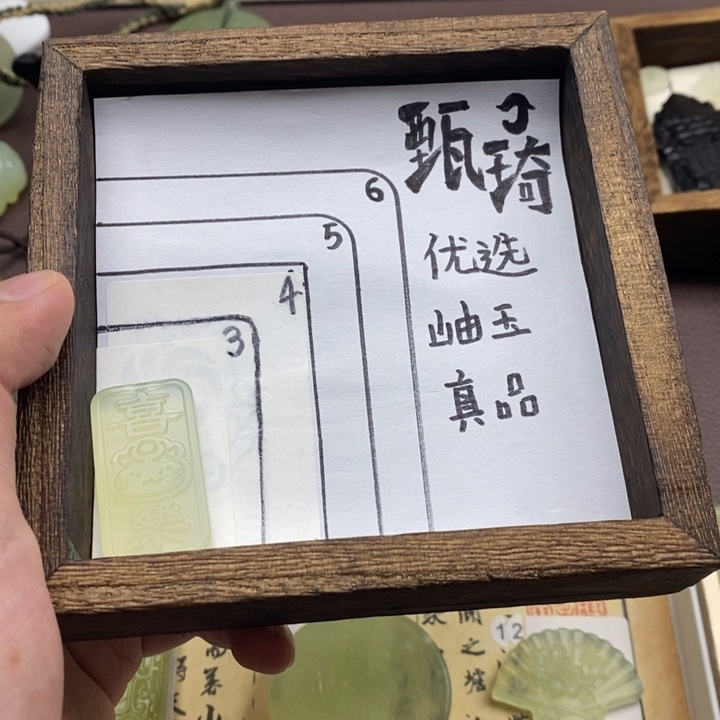 甄琦
优选
岫玉
真品
6
5
4
3
喜
樂
12
之